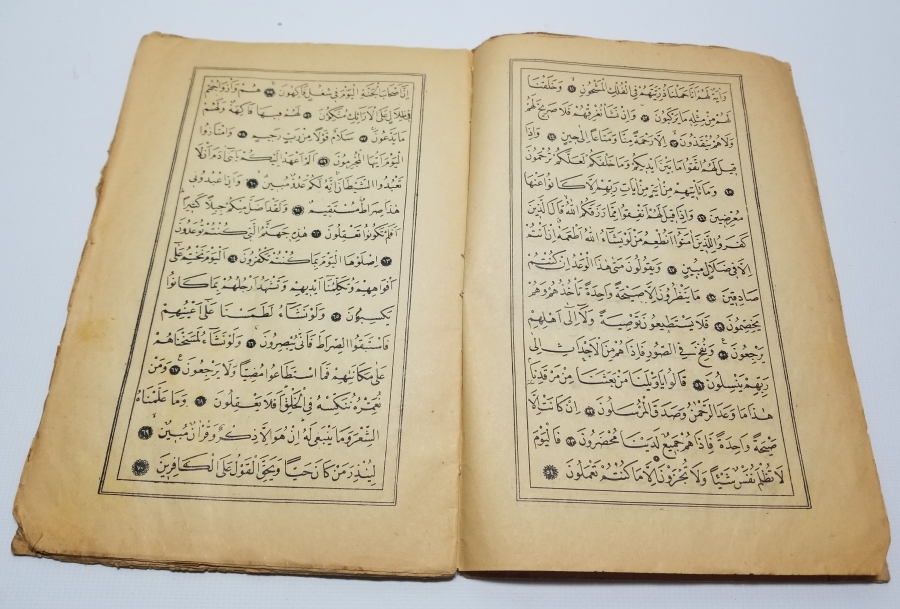 وَاٰيَةٌ لَهُمْ اَنَّا حَمَلْنَا ذُرِّيَّتَهُمْ فِى الْفُلْكِ الْمَشْحُونِ ٤١ وَخَلَقْنَا
لَهُمْ مِنْ مِثْلِهِ مَا يَرْكَبُونَ ٤٢ وَاِنْ نَشَأْ نُغْرِقْهُمْ فَلَا صَرِيخَ لَهُمْ
وَلَا هُمْ يُنْقَذُونَ ٤٣ اِلَّا رَحْمَةً مِنَّا وَمَتَاعًا اِلٰى حِينٍ ٤٤ وَاِذَا
قِيلَ لَهُمُ اتَّقُوا مَا بَيْنَ اَيْدِيكُمْ وَمَا خَلْفَكُمْ لَعَلَّكُمْ تُرْحَمُونَ
٤٥ وَمَا تَأْتِيهِمْ مِنْ اٰيَةٍ مِنْ اٰيَاتِ رَبِّهِمْ اِلَّا كَانُوا عَنْهَا
مُعْرِضِينَ ٤٦ وَاِذَا قِيلَ لَهُمْ اَنْفِقُوا مِمَّا رَزَقَكُمُ اللّٰهُ قَالَ الَّذِينَ
كَفَرُوا لِلَّذِينَ اٰمَنُوا اَنُطْعِمُ مَنْ لَوْ يَشَاءُ اللّٰهُ اَطْعَمَهُ اِنْ اَنْتُمْ
اِلَّا فِى ضَلَالٍ مُبِينٍ ٤٧ وَيَقُولُونَ مَتٰى هٰذَا الْوَعْدُ اِنْ كُنْتُمْ
صَادِقِينَ ٤٨ مَا يَنْظُرُونَ اِلَّا صَيْحَةً وَاحِدَةً تَأْخُذُهُمْ وَهُمْ
يَخِصِّمُونَ ٤٩ فَلَا يَسْتَطِيعُونَ تَوْصِيَةً وَلَا اِلٰى اَهْلِهِمْ
يَرْجِعُونَ ٥٠ وَنُفِخَ فِى الصُّورِ فَاِذَا هُمْ مِنَ الْاَجْدَاثِ اِلٰى
رَبِّهِمْ يَنْسِلُونَ ٥١ قَالُوا يَا وَيْلَنَا مَنْ بَعَثَنَا مِنْ مَرْقَدِنَا
هٰذَا مَا وَعَدَ الرَّحْمٰنُ وَصَدَقَ الْمُرْسَلُونَ ٥٢ اِنْ كَانَتْ اِلَّا
صَيْحَةً وَاحِدَةً فَاِذَا هُمْ جَمِيعٌ لَدَيْنَا مُحْضَرُونَ ٥٣ فَالْيَوْمَ
لَا تُظْلَمُ نَفْسٌ شَيْئًا وَلَا تُجْزَوْنَ اِلَّا مَا كُنْتُمْ تَعْمَلُونَ ٥٤
اِنَّ اَصْحَابَ الْجَنَّةِ الْيَوْمَ فِى شُغُلٍ فَاكِهُونَ ٥٥ هُمْ وَاَزْوَاجُهُمْ
فِى ظِلَالٍ عَلَى الْاَرَائِكِ مُتَّكِؤُنَ ٥٦ لَهُمْ فِيهَا فَاكِهَةٌ وَلَهُمْ
مَا يَدَّعُونَ ٥٧ سَلَامٌ قَوْلًا مِنْ رَبٍّ رَحِيمٍ ٥٨ وَامْتَازُوا
الْيَوْمَ اَيُّهَا الْمُجْرِمُونَ ٥٩ اَلَمْ اَعْهَدْ اِلَيْكُمْ يَا بَنِى اٰدَمَ اَنْ لَا
تَعْبُدُوا الشَّيْطَانَ اِنَّهُ لَكُمْ عَدُوٌّ مُبِينٌ ٦٠ وَاَنِ اعْبُدُونِى
هٰذَا صِرَاطٌ مُسْتَقِيمٌ ٦١ وَلَقَدْ اَضَلَّ مِنْكُمْ جِبِلًّا كَثِيرًا
اَفَلَمْ تَكُونُوا تَعْقِلُونَ ٦٢ هٰذِهِ جَهَنَّمُ الَّتِى كُنْتُمْ تُوعَدُونَ
٦٣ اِصْلَوْهَا الْيَوْمَ بِمَا كُنْتُمْ تَكْفُرُونَ ٦٤ اَلْيَوْمَ نَخْتِمُ عَلٰى
اَفْوَاهِهِمْ وَتُكَلِّمُنَا اَيْدِيهِمْ وَتَشْهَدُ اَرْجُلُهُمْ بِمَا كَانُوا
يَكْسِبُونَ ٦٥ وَلَوْ نَشَاءُ لَطَمَسْنَا عَلٰى اَعْيُنِهِمْ
فَاسْتَبَقُوا الصِّرَاطَ فَاَنّٰى يُبْصِرُونَ ٦٦ وَلَوْ نَشَاءُ لَمَسَخْنَاهُمْ
عَلٰى مَكَانَتِهِمْ فَمَا اسْتَطَاعُوا مُضِيًّا وَلَا يَرْجِعُونَ ٦٧ وَمَنْ
نُعَمِّرْهُ نُنَكِّسْهُ فِى الْخَلْقِ اَفَلَا يَعْقِلُونَ ٦٨ وَمَا عَلَّمْنَاهُ
الشِّعْرَ وَمَا يَنْبَغِى لَهُ اِنْ هُوَ اِلَّا ذِكْرٌ وَقُرْاٰنٌ مُبِينٌ ٦٩
لِيُنْذِرَ مَنْ كَانَ حَيًّا وَيَحِقَّ الْقَوْلُ عَلَى الْكَافِرِينَ ٧٠